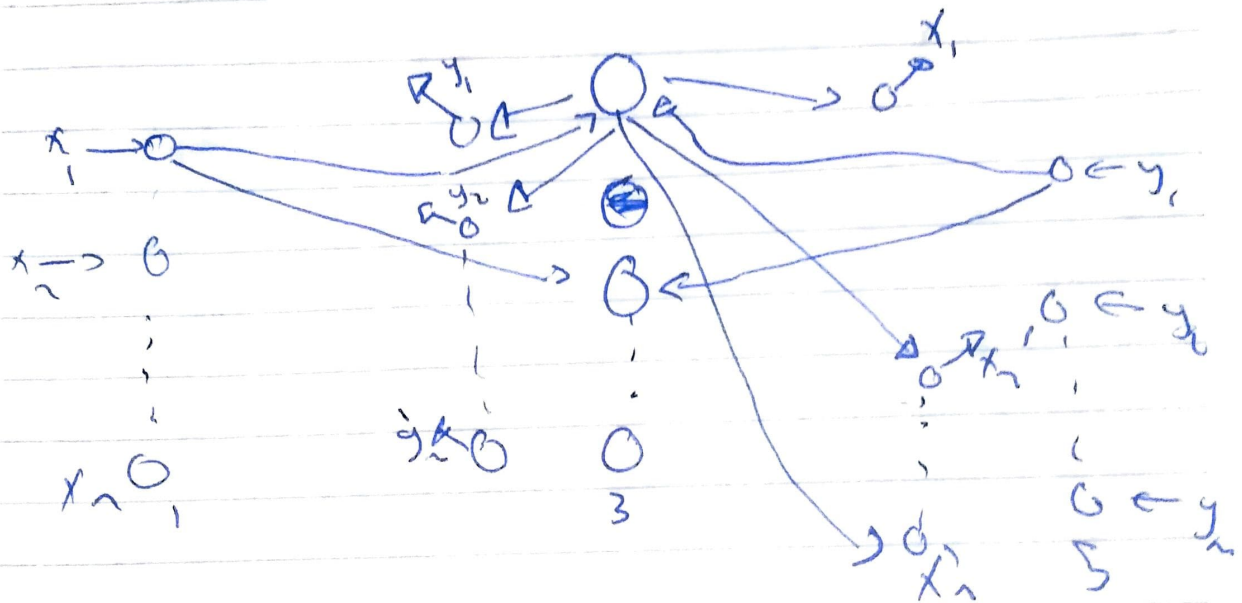 x₁
y₁
x₁
x₁
y₂
y₁
x₂
x₂
y₂
yₙ
xₙ
1
3
yₙ
xₙ
5